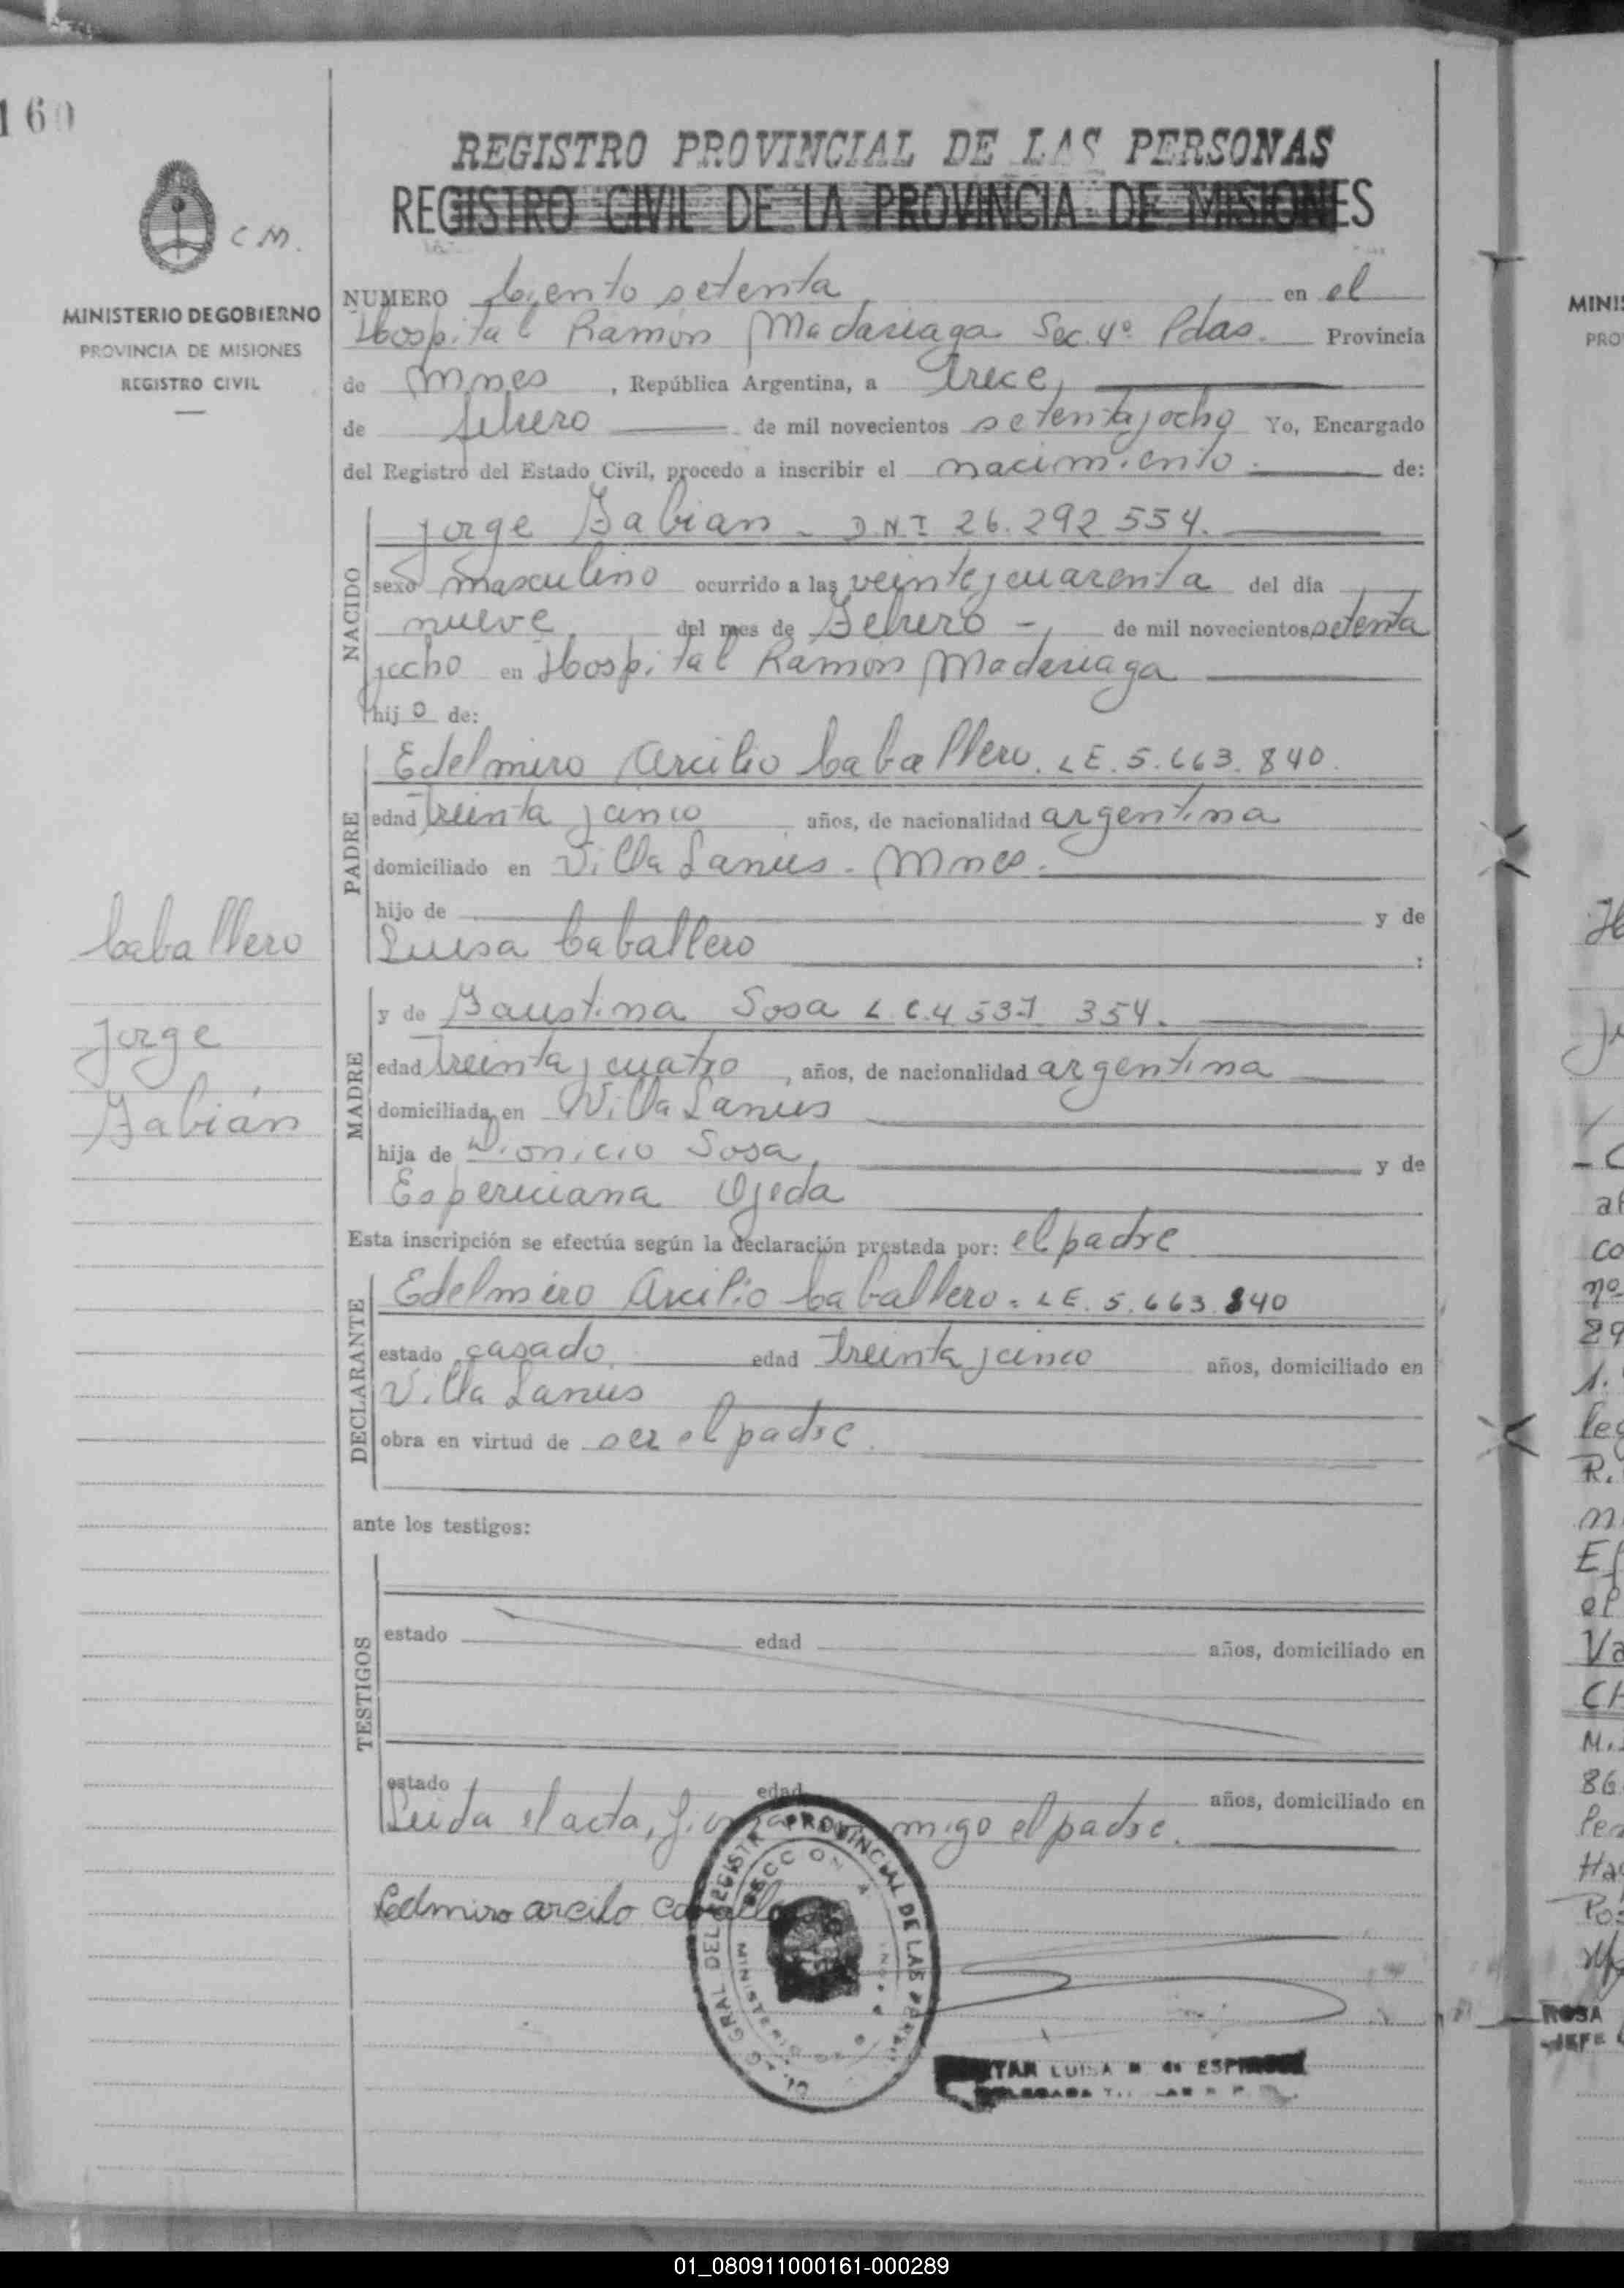 160
REGISTRO PROVINCIAL DE LAS PERSONAS
REGISTRO CIVIL DE LA PROVINCIA DE MISIONES
C M.
MINISTERIO DE GOBIERNO
PROVINCIA DE MISIONES
REGISTRO CIVIL
NUMERO Ciento setenta, en el
Hospital Ramón Madariaga Sec. 4º Pdas. Provincia
de Mnes, República Argentina, a Trece,
de febrero de mil novecientos setentayocho Yo, Encargado
del Registro del Estado Civil, procedo a inscribir el nacimiento de:
NACIDO
Jorge Fabian - D.N.I 26.292.554.
sexo masculino ocurrido a las veinteycuarenta del día
nueve del mes de Febrero -, de mil novecientos setenta
yocho en Hospital Ramón Madariaga
hijo de:
PADRE
Edelmiro Arcilio Caballero. LE. 5.663.840.
edad treinta y cinco, años, de nacionalidad argentina
domiciliado en Villa Lanus - Mnes.
hijo de y de
Luisa Caballero :
Caballero
Jorge
Fabián
MADRE
y de Faustina Sosa L.C. 4 537 354.
edad treinta y cuatro, años, de nacionalidad argentina
domiciliada en Villa Lanus
hija de Dionicio Sosa, y de
Ojeda
Esta inscripción se efectúa según la declaración prestada por: el padre
DECLARANTE
Edelmiro Arcilio Caballero. LE. 5.663.840
estado casado, edad treinta y cinco años, domiciliado en
Villa Lanus
obra en virtud de ser el padre.
ante los testigos:
TESTIGOS
estado edad años, domiciliado en
estado edad años, domiciliado en
Leida el acta, migo el padre.
Edmiro arcilo
PROVINCIAL DE LAS
GRAL DEL
LUISA M. de
MINIS
PRO
ROSA
JEFE
01_080911000161-000289